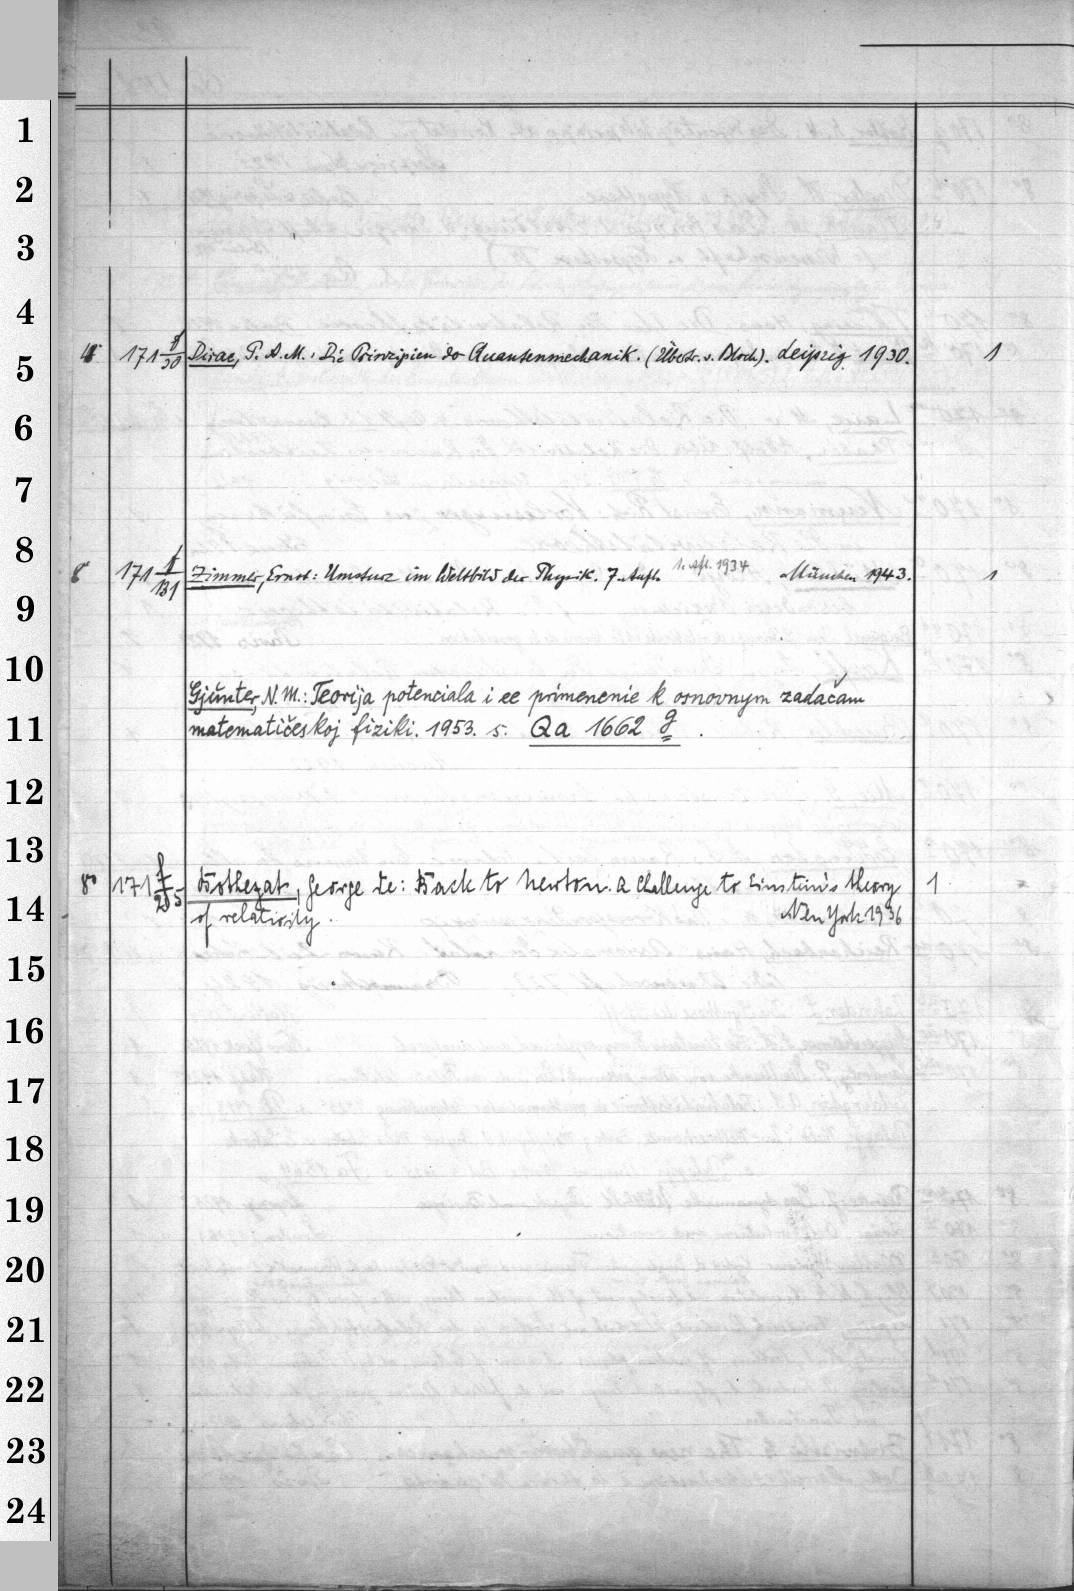 1
2
3
4
5
6
7
8
9
10
11
12
13
14
15
16
17
18
19
20
21
22
23
24
171 f/30 Dirac, P. A. M.: Die Prinzipien der Quantenmechanik. (Übers. v. Bloch). Leipzig 1930. 1
8° 171 f/131 Zimmer, Ernst: Umsturz im Weltbild der Physik. 7. Aufl. 1. Afl. 1934 München 1943. 1
Gjunter, N. M.: Teorija potenciala i ee primenenie k osnovnym zadačam
matematičeskoj fiziki. 1953. s. Qa 1662 g .
8° 171 f/205 Bothezat, George de: Back to Newton. A Challenge to Einstein's theory 1
of relativity. New York 1936